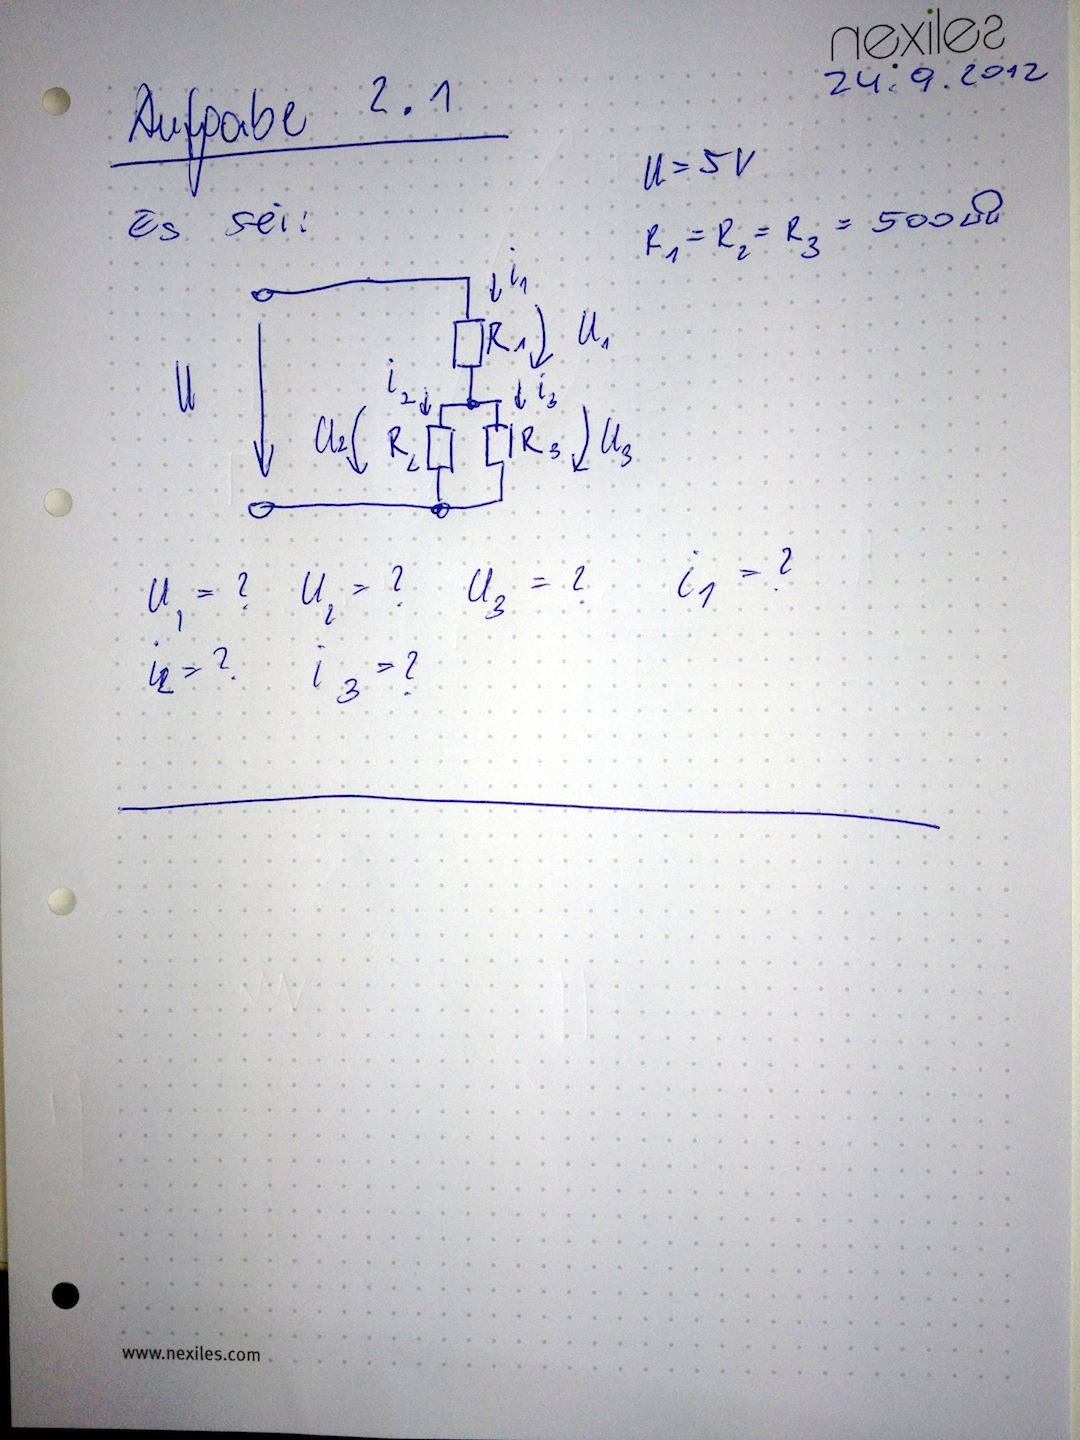 nexiles
24.9.2012
Aufgabe 2.1
U = 5V
Es sei:
R1 = R2 = R3 = 500 Ω
i1
R1 U1
U
i2 i3
U2 R2 R3 U3
U1 = ? U2 = ? U3 = ? i1 = ?
i2 = ? i3 = ?
www.nexiles.com